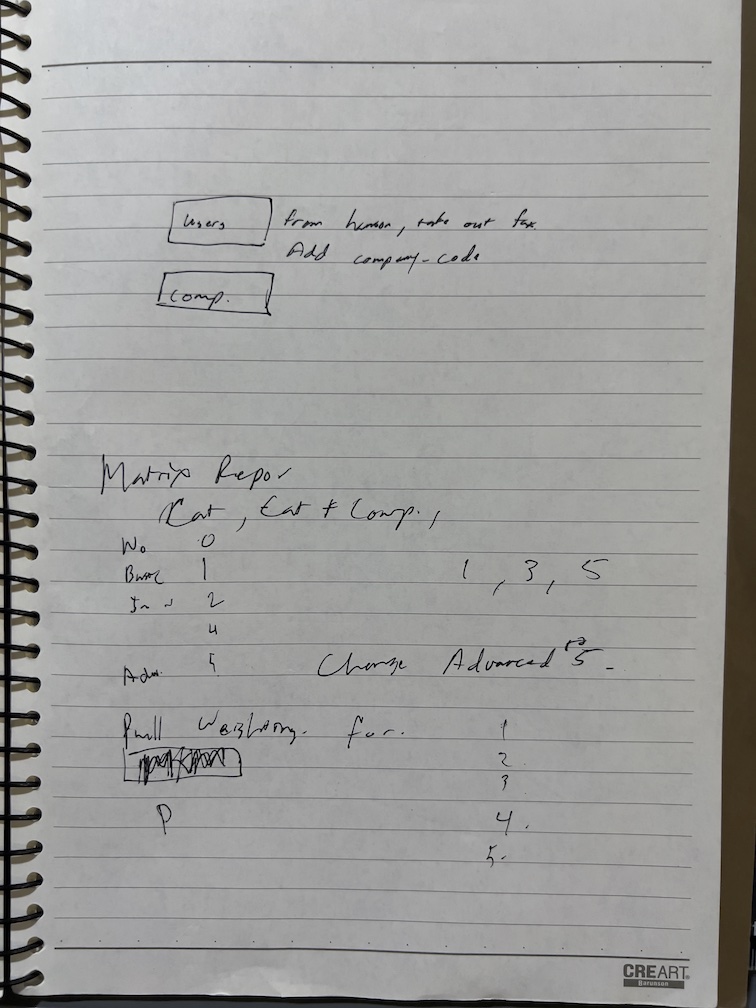 Users from human, take out fax.
Add company-code
Comp.
Matrix Repor
Cat, Cat + Comp.,
No 0
Basic 1 1, 3, 5
2
4
Adv. 5 Change Advanced to 5.
Pull Weighting. for. 1
2
3
P 4.
5.
CREART
Barunson